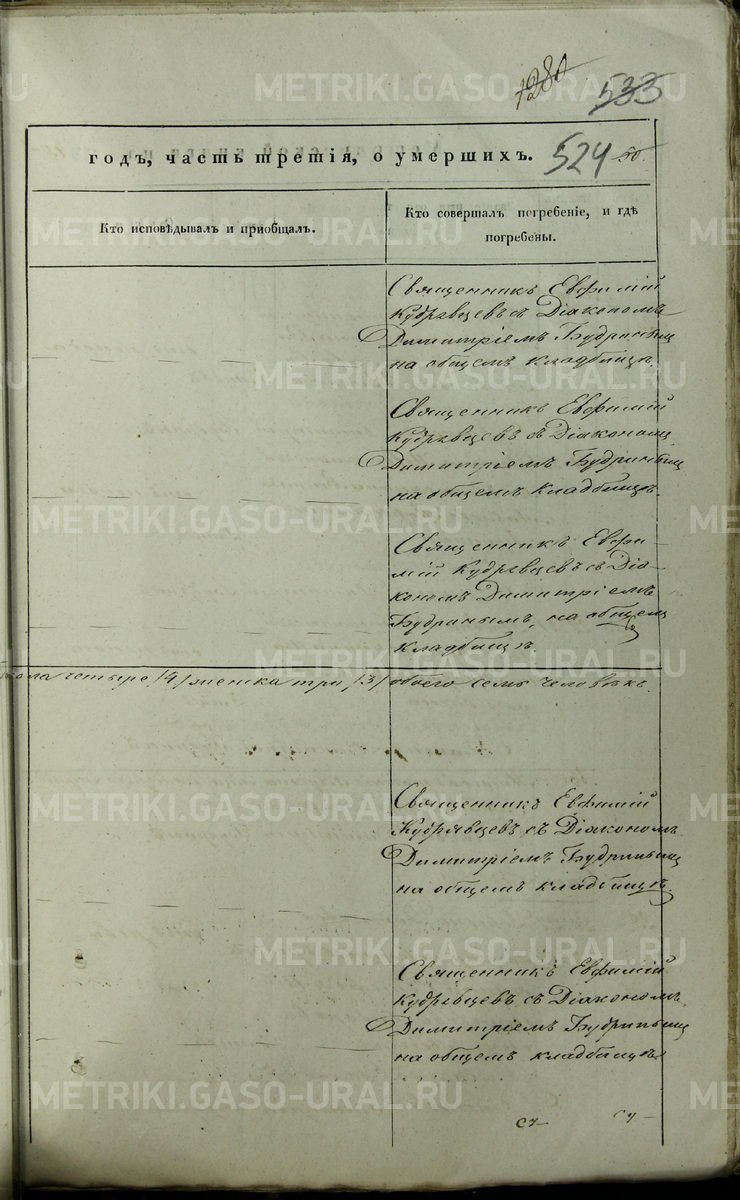 1280
533
годъ, часть третія, о умершихъ.
524
Кто исповѣдывалъ и приобщалъ.
Кто совершалъ погребеніе, и гдѣ
погребены.
Священникъ Евфимій
Кудрявцевъ съ Діакономъ
Димитріемъ Будринымъ
на общемъ кладбищѣ.
Священникъ Евфимій
Кудрявцевъ съ Діакономъ
Димитріемъ Будринымъ
на общемъ кладбищѣ.
Священникъ Евфи-
мій Кудрявцевъ съ Діа-
кономъ Димитріемъ
Будринымъ, на общемъ
кладбищѣ.
четыре /4/ женска три /3/ обоего семь человѣкъ.
Священникъ Евфимій
Кудрявцевъ съ Діакономъ
Димитріемъ Будринымъ
на общемъ кладбищѣ.
Священникъ Евфимій
Кудрявцевъ съ Діакономъ
Димитріемъ Будринымъ
на общемъ кладбищѣ
METRIKI.GASO-URAL.RU